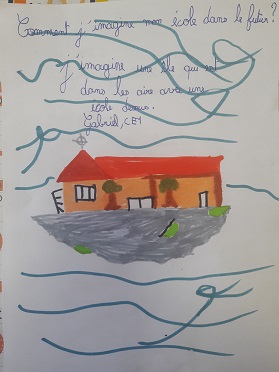 Comment j'imagine mon école dans le futur?
J'imagine une île qui est
dans les aire avec une
école dessus.
Gabriel, CE1